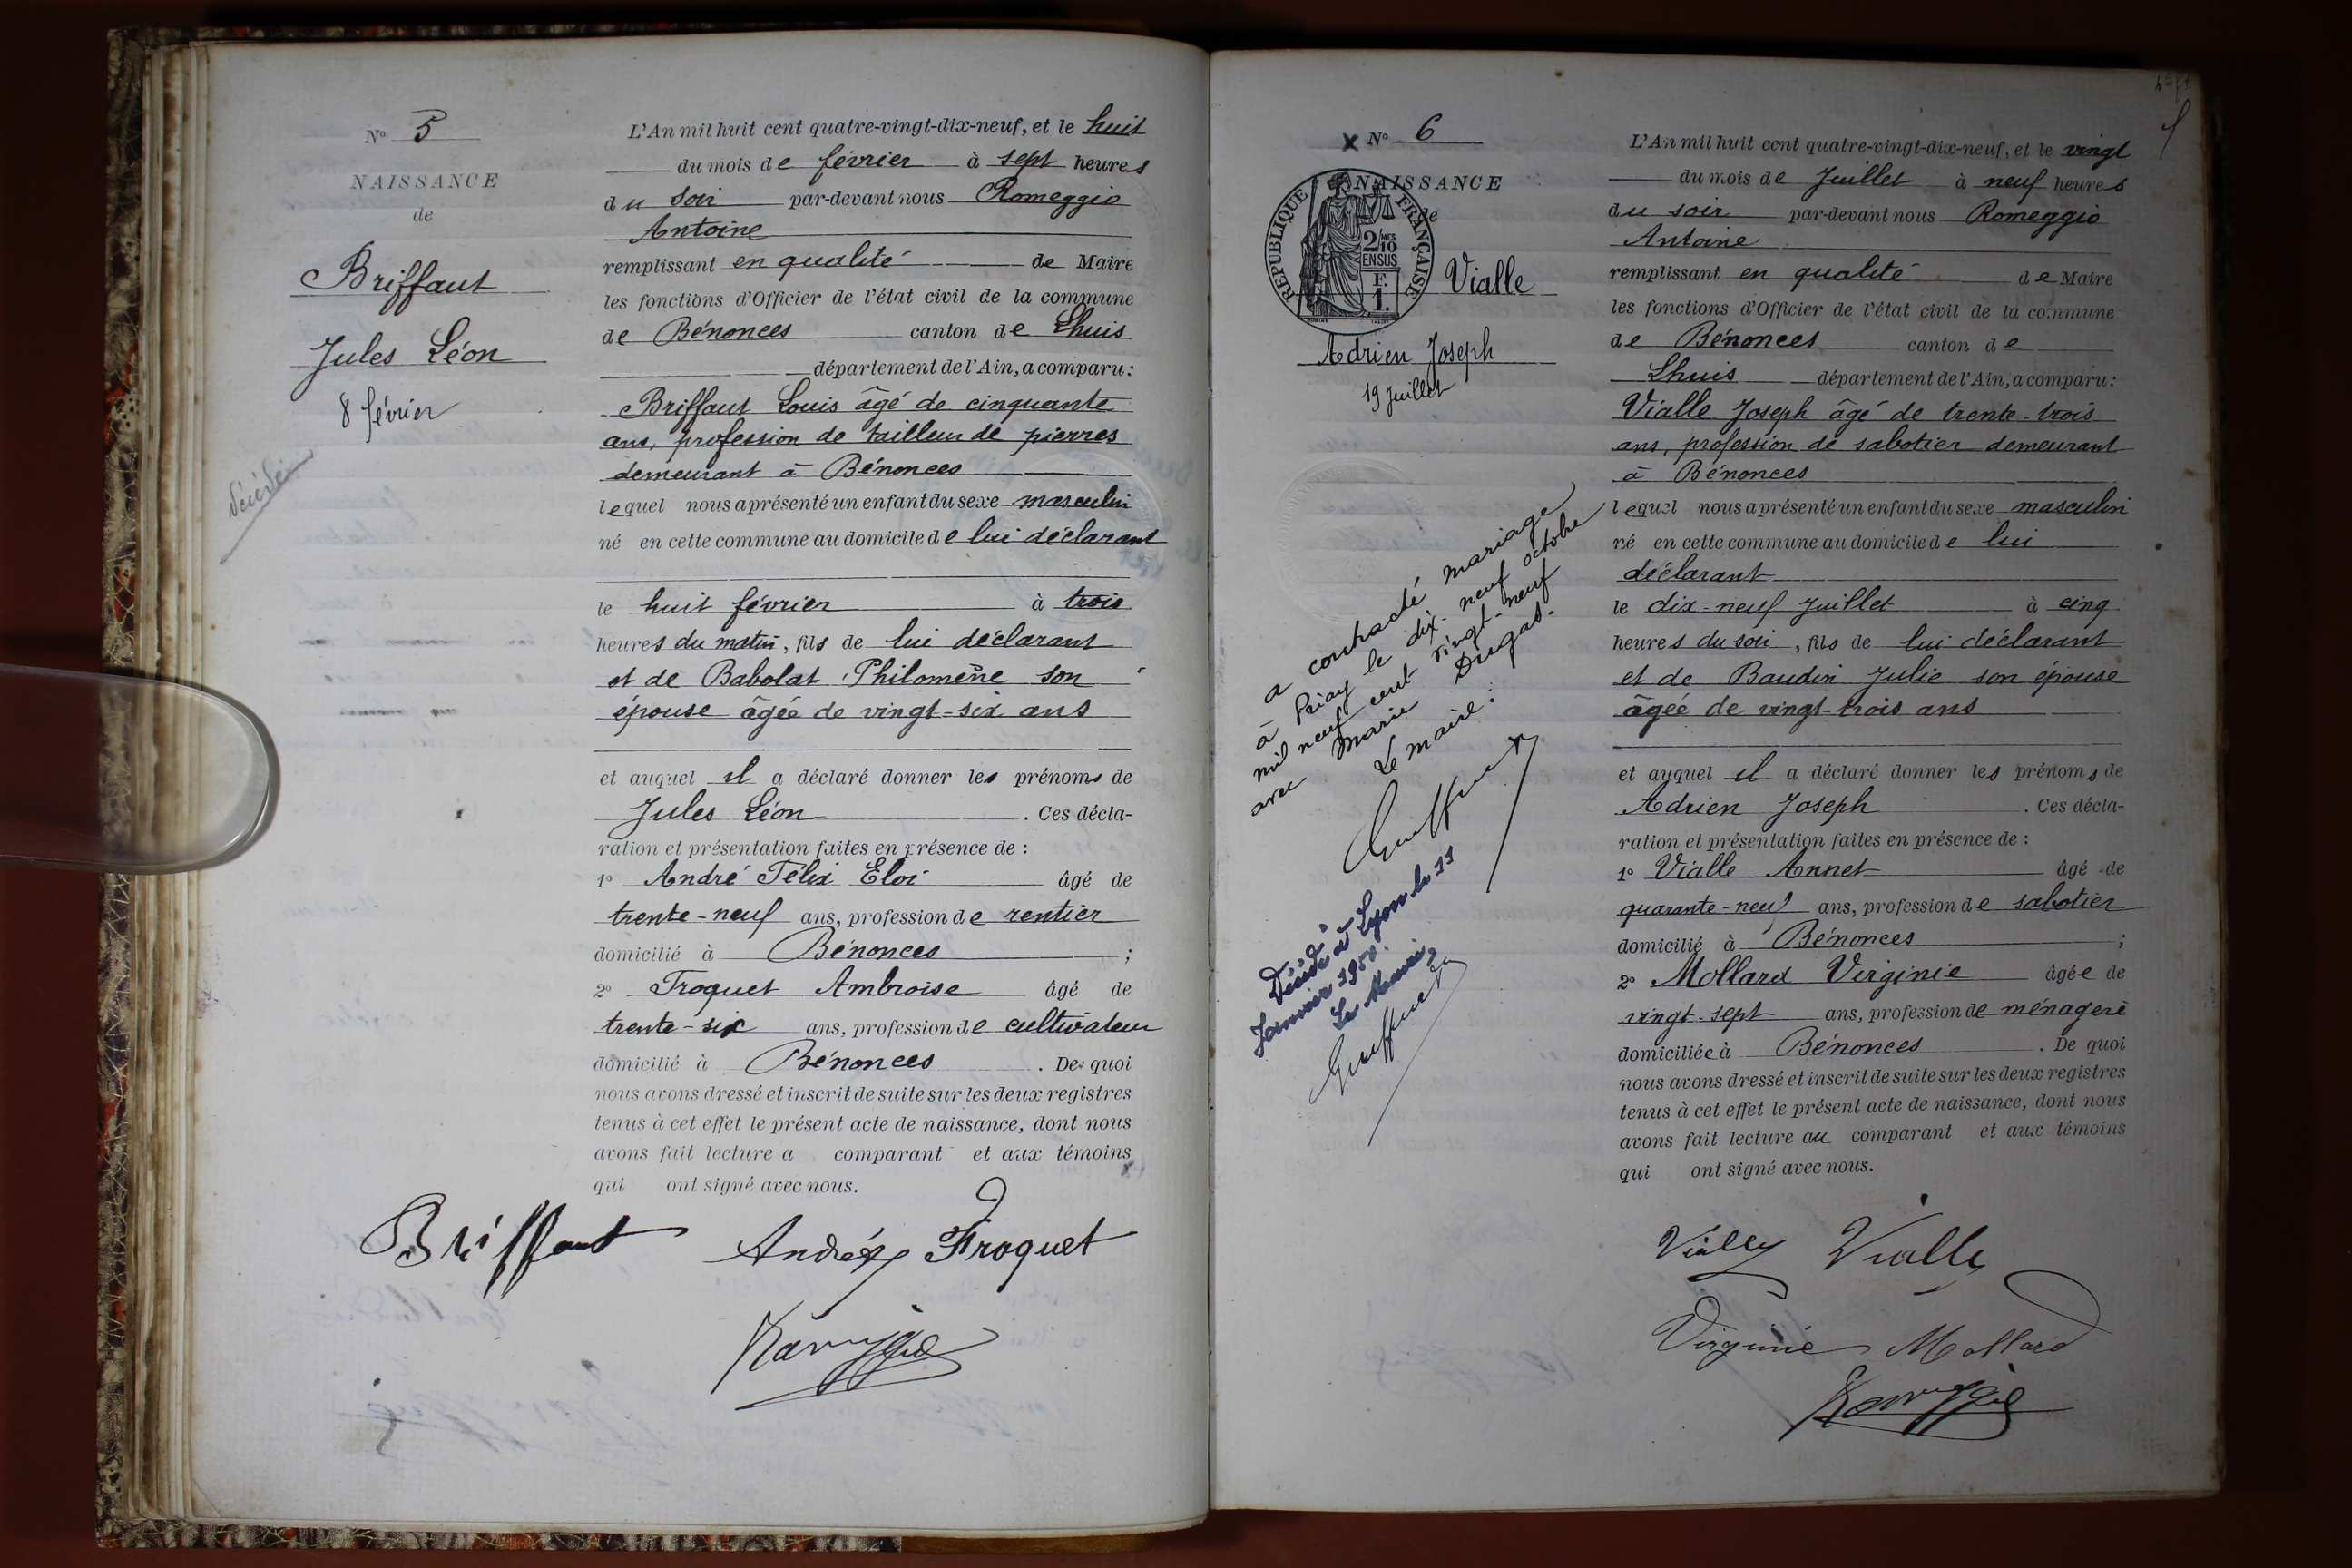 N° 5
NAISSANCE
de
Briffaut
Jules Léon
8 février
décédé
L'An mil huit cent quatre-vingt-dix-neuf, et le huit
du mois de février à sept heures
du soir par-devant nous Romeggio
Antoine
remplissant en qualité de Maire
les fonctions d'Officier de l'état civil de la commune
de Bénonces canton de Lhuis
département de l'Ain, a comparu :
Briffaut Louis âgé de cinquante
ans, profession de tailleur de pierres
demeurant à Bénonces
lequel nous a présenté un enfant du sexe masculin
né en cette commune au domicile de lui déclarant
le huit février à trois
heures du matin, fils de lui déclarant
et de Babolat Philomène son
épouse âgée de vingt-six ans
et auquel il a déclaré donner les prénoms de
Jules Léon . Ces décla-
ration et présentation faites en présence de :
1° André Félix Eloi âgé de
trente-neuf ans, profession de rentier
domicilié à Bénonces ;
2° Froquet Ambroise âgé de
trente-six ans, profession de cultivateur
domicilié à Bénonces . De quoi
nous avons dressé et inscrit de suite sur les deux registres
tenus à cet effet le présent acte de naissance, dont nous
avons fait lecture a comparant et aux témoins
qui ont signé avec nous.
Briffaut André Froquet
Romeggio
x N° 6
NAISSANCE
de
REPUBLIQUE FRANÇAISE
2/10
EN SUS
F.
1
Vialle
Adrien Joseph
19 Juillet
a contracté mariage
à Priay le dix-neuf octobre
mil neuf cent vingt-neuf
avec Marie Dugas.
Le maire :
Décédé à Lyon le 11
Janvier 1950.
Le Maire,
L'An mil huit cent quatre-vingt-dix-neuf, et le vingt
du mois de Juillet à neuf heures
du soir par-devant nous Romeggio
Antoine
remplissant en qualité de Maire
les fonctions d'Officier de l'état civil de la commune
de Bénonces canton de
Lhuis département de l'Ain, a comparu :
Vialle Joseph âgé de trente-trois
ans, profession de sabotier demeurant
à Bénonces
lequel nous a présenté un enfant du sexe masculin
né en cette commune au domicile de lui
déclarant
le dix-neuf Juillet à cinq
heures du soir, fils de lui déclarant
et de Baudin Julie son épouse
âgée de vingt-trois ans
et auquel il a déclaré donner les prénoms de
Adrien Joseph . Ces décla-
ration et présentation faites en présence de :
1° Vialle Annet âgé de
quarante-neuf ans, profession de sabotier
domicilié à Bénonces ;
2° Mollard Virginie âgée de
vingt-sept ans, profession de ménagère
domiciliée à Bénonces . De quoi
nous avons dressé et inscrit de suite sur les deux registres
tenus à cet effet le présent acte de naissance, dont nous
avons fait lecture au comparant et aux témoins
qui ont signé avec nous.
Vialle Vialle
Virginie Mollard
Romeggio